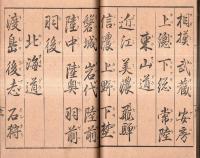 相摸 武蔵 安房
上總 下總 常陸
東山道
近江 美濃 飛騨
信濃 上野 下野
磐城 岩代 陸前
陸中 陸奥 羽前
羽後
北海道
渡島 後志 石狩